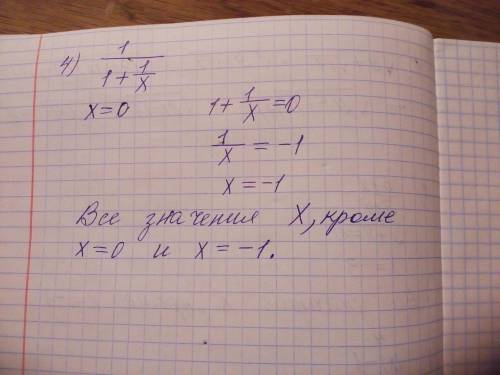 4) 1/(1+1/x)
x=0 1+1/x=0
1/x=-1
x=-1
Все значения X, кроме
x=0 и x=-1.